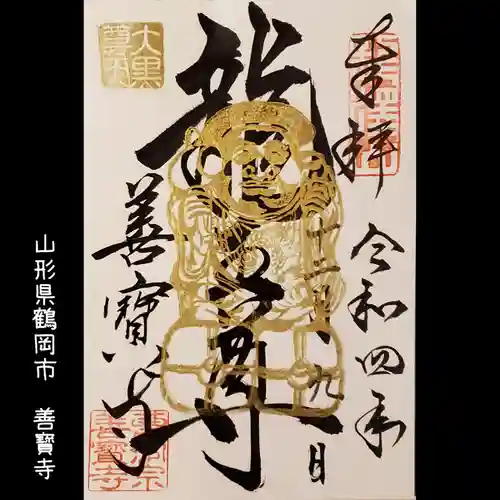 奉拝
令和四年
十二月九日
龍王尊
善寳寺
大黒
尊天
山形県鶴岡市 善寳寺